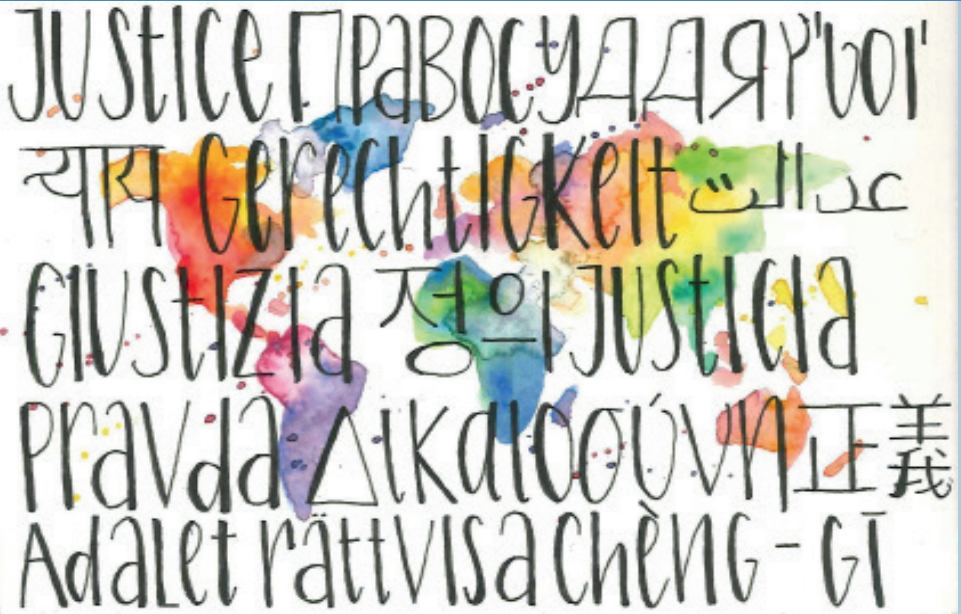 Justice Правосуддя
न्याय Gerechtigkeit عدالت
Giustizia 정의 Justicia
Pravda Δικαιοσύνη 正義
Adalet rättvisa chèng-gī